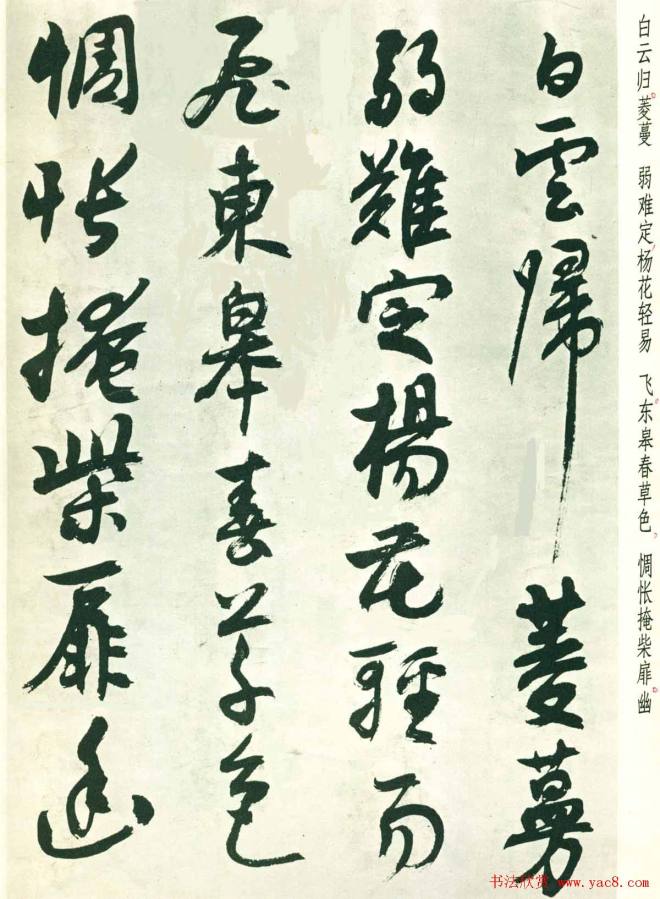 白云归。菱蔓　弱难定，杨花轻易　飞。东皋春草色，惆怅掩柴扉。幽
白雲歸菱蔓
弱難定楊花輕易
飛東皋春草色
惆悵掩柴扉幽
书法欣赏 www.yac8.com